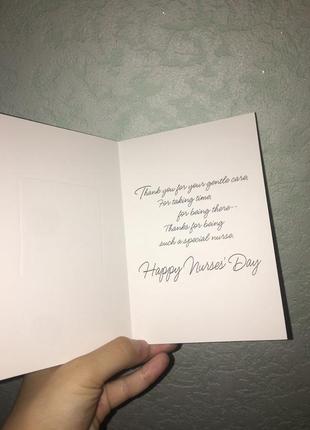 Thank you for your gentle care,
For taking time,
for being there--
Thanks for being
such a special nurse.
Happy Nurses' Day